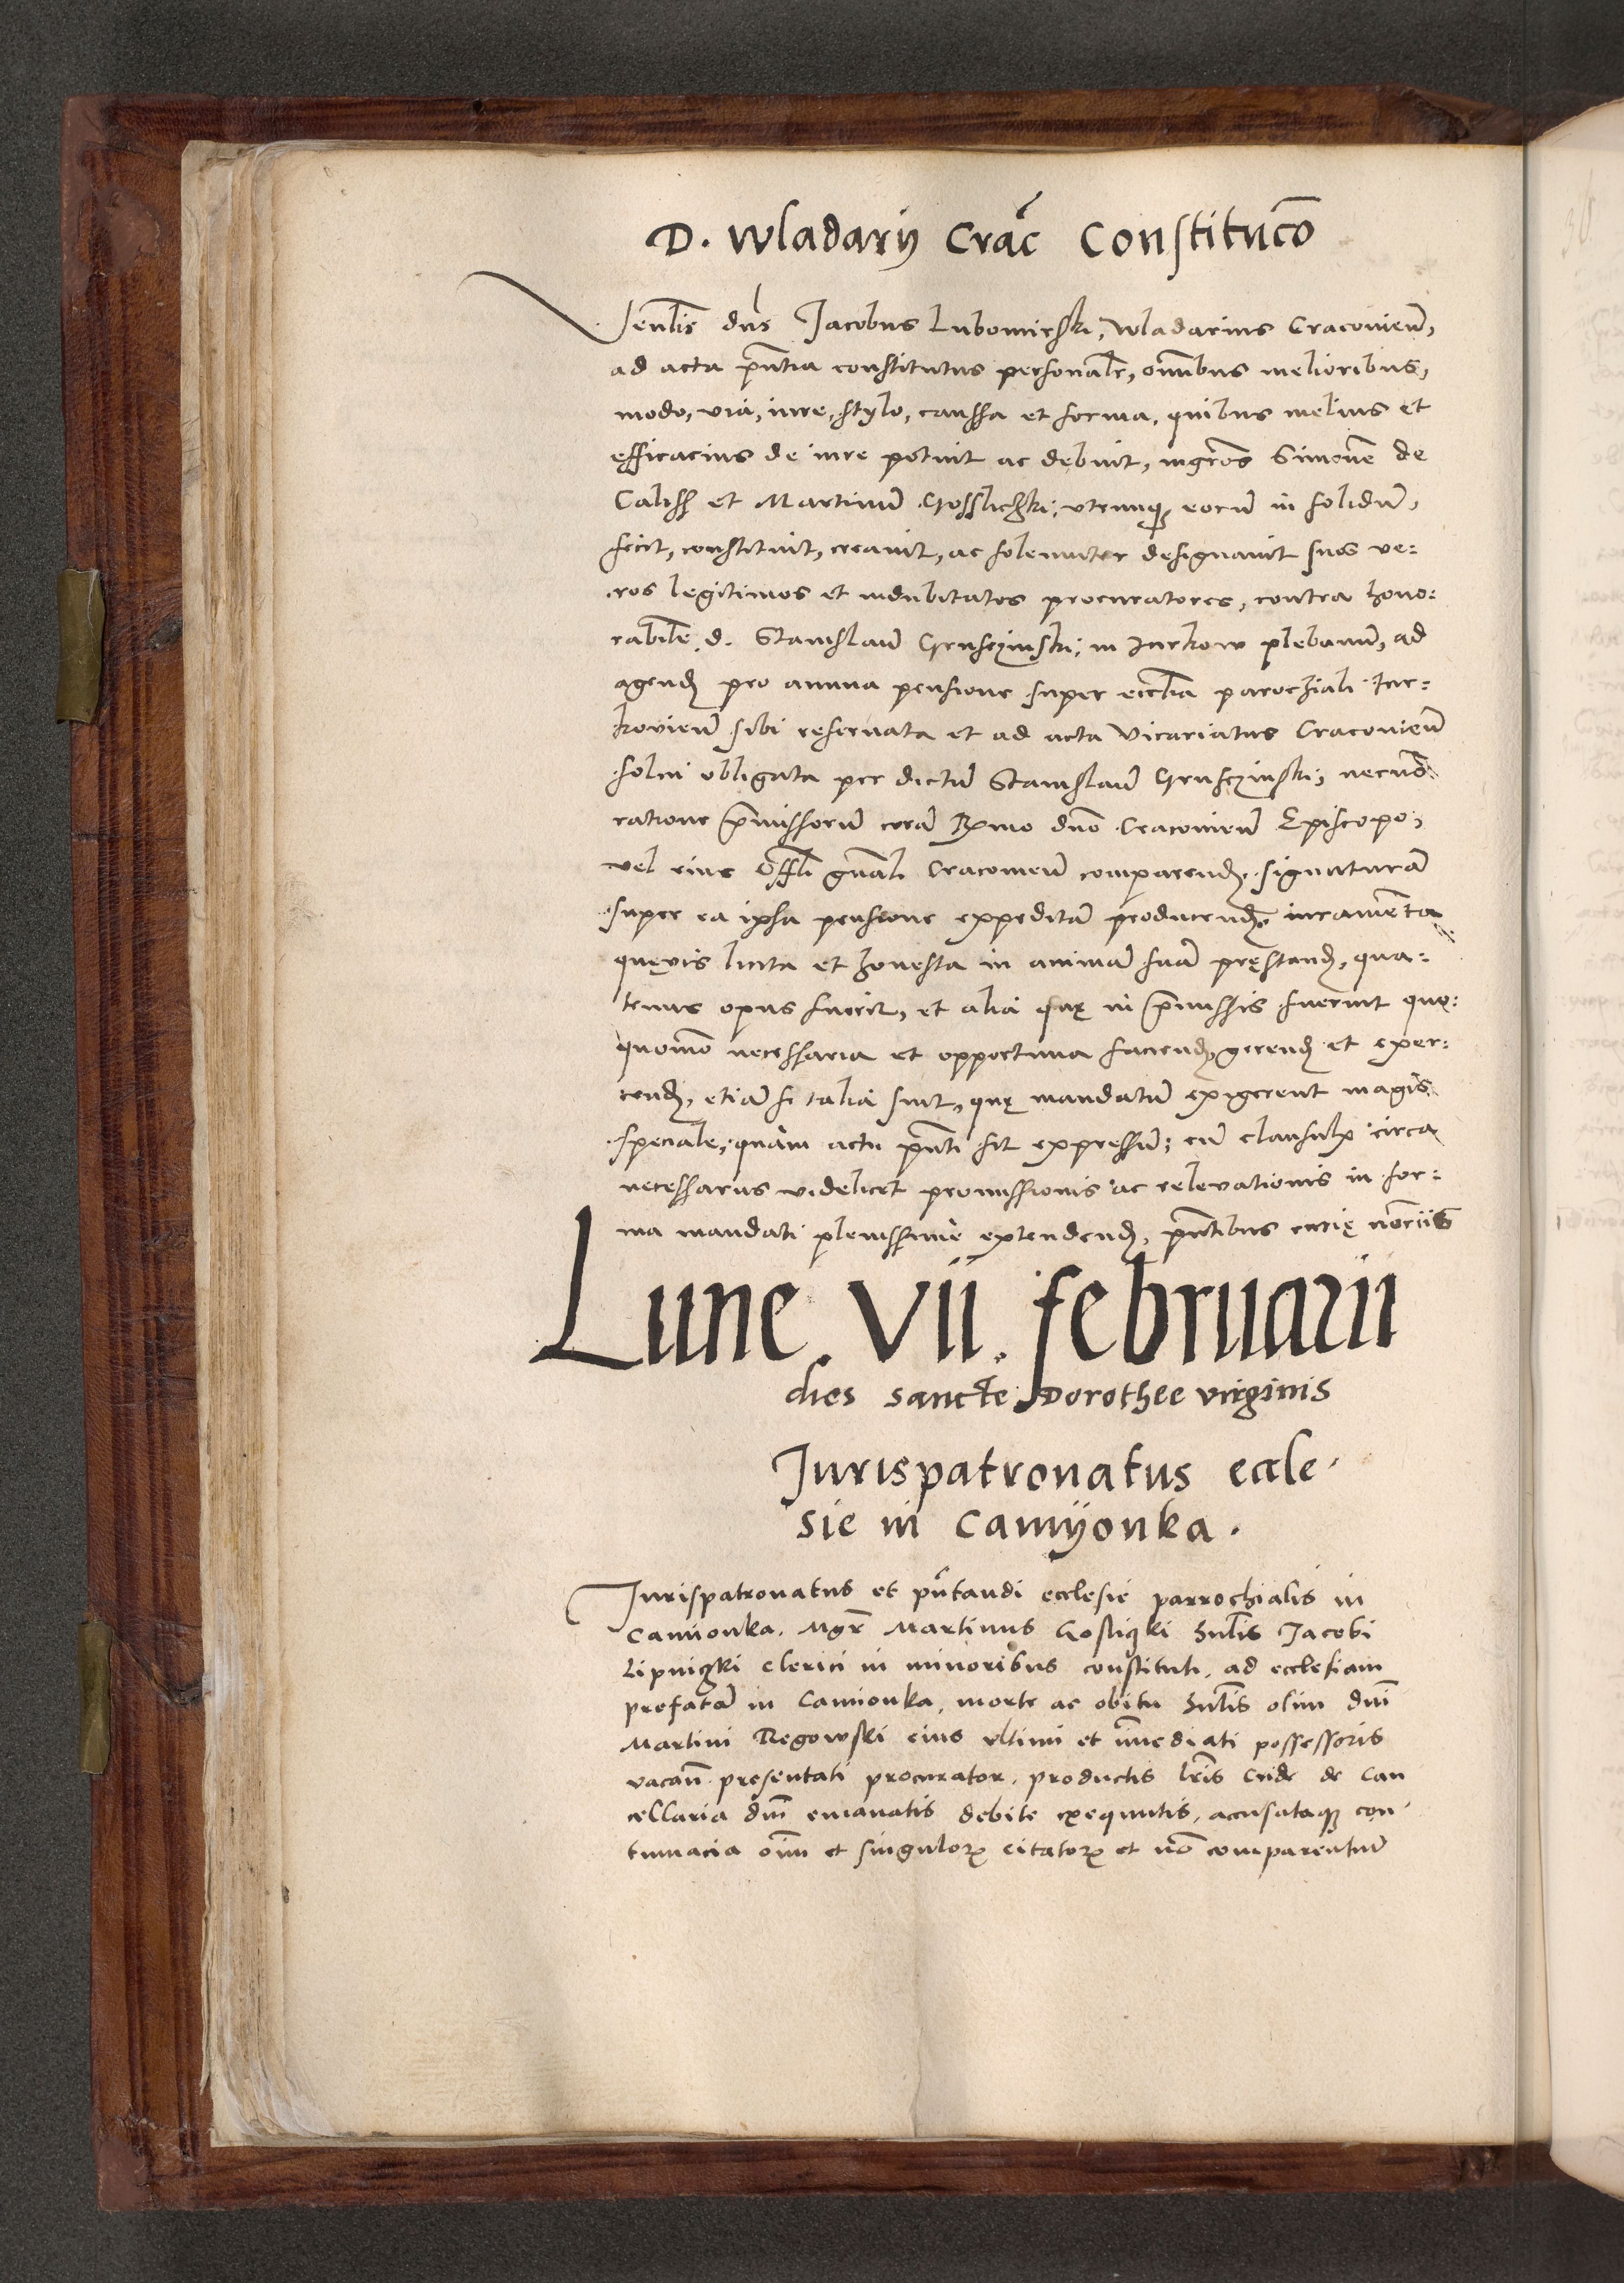 D. Wladarij Crac̄ Constituco̅
Venl̅is dn̅s Jacobus Lubomirski, Wladarius Cracovien̅,
ad acta pn̅tia constitutus personalr̅, om̅ibus melioribus,
modo, via, iure, stylo, caussa et forma, quibus melius et
efficacius de iure potuit ac debuit, mgr̅os Simone̅ de
Calissz et Martinu̅ Gosslichski, utrunq̷ eoru̅ in solidu̅,
fecit, constituit, creavit, ac solemniter designavit suos ve:
ros legitimos et indubitatos procuratores, contra hono:
rabile̅ d. Stanislau̅ Gruschinski, in Jurkow plebanu̅, ad
agend̷ pro annua pensione super ecclia̅ parochiali Jur:
kovien̅ sibi reservata et ad acta Vicariatus Cracovien̅
solvi obligata per dictu̅ Stanislau̅ Gruschinski, necno̅
ratione p̅missoru̅ cora̅ R̅x̅mo dn̅o Cracovien̅ Episcopo,
vel eius Offl̅i gn̅ali Cracovien̅ comparend̷, signatura̅
super ea ipsa pensione expedita̅ producend̷, iuramenta
quęvis licita et honesta in anima̅ sua̅ pręstand̷, qua:
tenus opus fuerit, et alia quę in p̅missis fuerint quo:
quomo̅ necessaria et opportuna faciend̷, gerend̷ et exer:
cend̷, etia̅ si talia sint, quę mandatu̅ exigerent magis
speciale, quàm actu pn̅ti sit expressu̅; cu̅ clausulꝭ circa
necessarijs videlicet promissionis ac relevationis in for:
ma mandati plenissimè extendend̷, pn̅tibus curię not̅rijs
Lune. VII. februarii
dies sancte Dorothee virginis
Jurispatronatus eccle-
sie in Camijonka.
Jurispatronatus et pn̅tandi ecclesie parrochialis in
Camionka. Mgr̅ Martinus Gosliczki hn̅lis Jacobi
Lipniczki clerici in minoribus constituti, ad ecclesiam
prefata̅ in Camionka, morte ac obitu hn̅lis olim dn̅i
Martini Regowski eius ultimi et im̅ediati possessoris
vacan̅ presentati procurator, productis lr̅is cride de can
cellaria dn̅i emanatis debite exequutis, accusataq̷ con-
tumacia oi̅m et singuloꝝ citatoꝝ et no̅ comparentiu̅